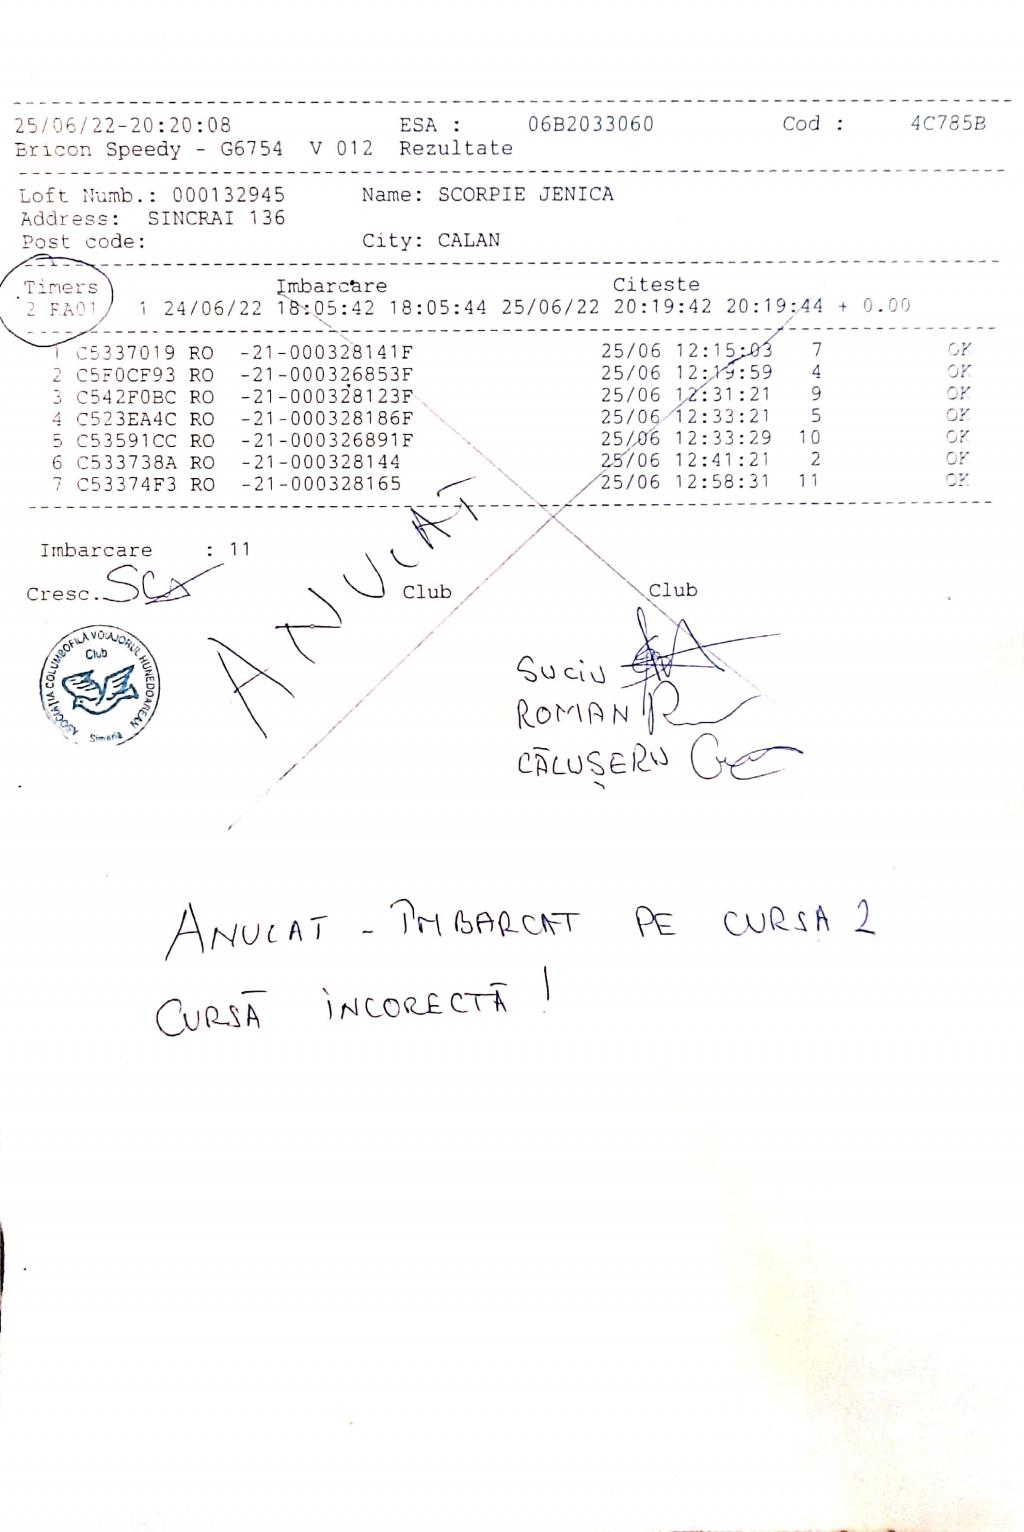 25/06/22-20:20:08 ESA : 06B2033060 Cod : 4C785B
Bricon Speedy - G6754 V 012 Rezultate
Loft Numb.: 000132945 Name: SCORPIE JENICA
Address: SINCRAI 136
Post code: City: CALAN
Timers Imbarcare Citeste
2 FA01 1 24/06/22 18:05:42 18:05:44 25/06/22 20:19:42 20:19:44 + 0.00
1 C5337019 RO -21-000328141F 25/06 12:15:03 7 OK
2 C5F0CF93 RO -21-000326853F 25/06 12:19:59 4 OK
3 C542F0BC RO -21-000328123F 25/06 12:31:21 9 OK
4 C523EA4C RO -21-000328186F 25/06 12:33:21 5 OK
5 C53591CC RO -21-000326891F 25/06 12:33:29 10 OK
6 C533738A RO -21-000328144 25/06 12:41:21 2 OK
7 C53374F3 RO -21-000328165 25/06 12:58:31 11 OK
ANULAT
Imbarcare : 11
Cresc. Club Club
ASOCIAȚIA COLUMBOFILA VOIAJORUL HUNEDOAREAN
Club
Simeria
SUCIU
ROMAN
CĂLUȘERU
ANULAT - ÎMBARCAT PE CURSA 2
CURSĂ INCORECTĂ !